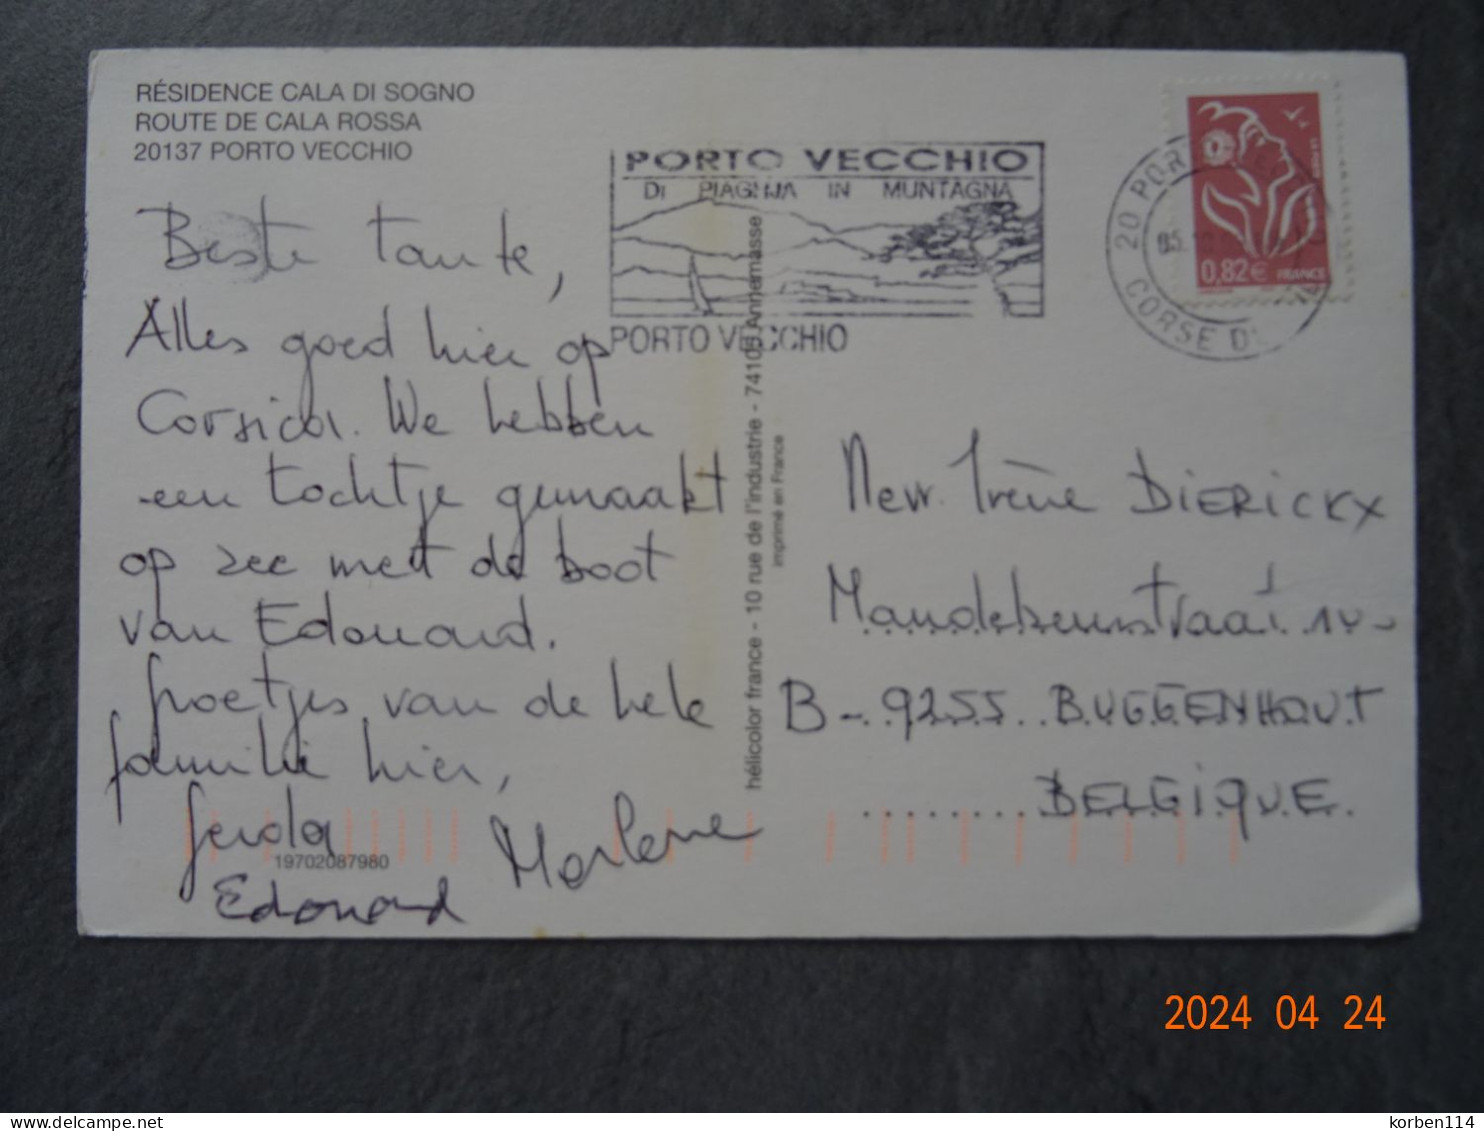 RÉSIDENCE CALA DI SOGNO
ROUTE DE CALA ROSSA
20137 PORTO VECCHIO
Beste tante,
Alles goed hier op
Corsica. We hebben
een tochtje gemaakt
op zee met de boot
van Edouard.
Groetjes van de hele
familie hier,
Gerda Marlene
19702087980
Edouard
PORTO VECCHIO
DI PIAGHJA IN MUNTAGNA
PORTO VECCHIO
hélicolor france - 10 rue de l'industrie - 74105 Annemasse
imprimé en France
20 POR
CORSE DU
0.82€ FRANCE
LA POSTE
Mevr. Irène DIERICKX
B-9255 BUGGENHOUT
BELGIQUE.
2024 04 24
korben114